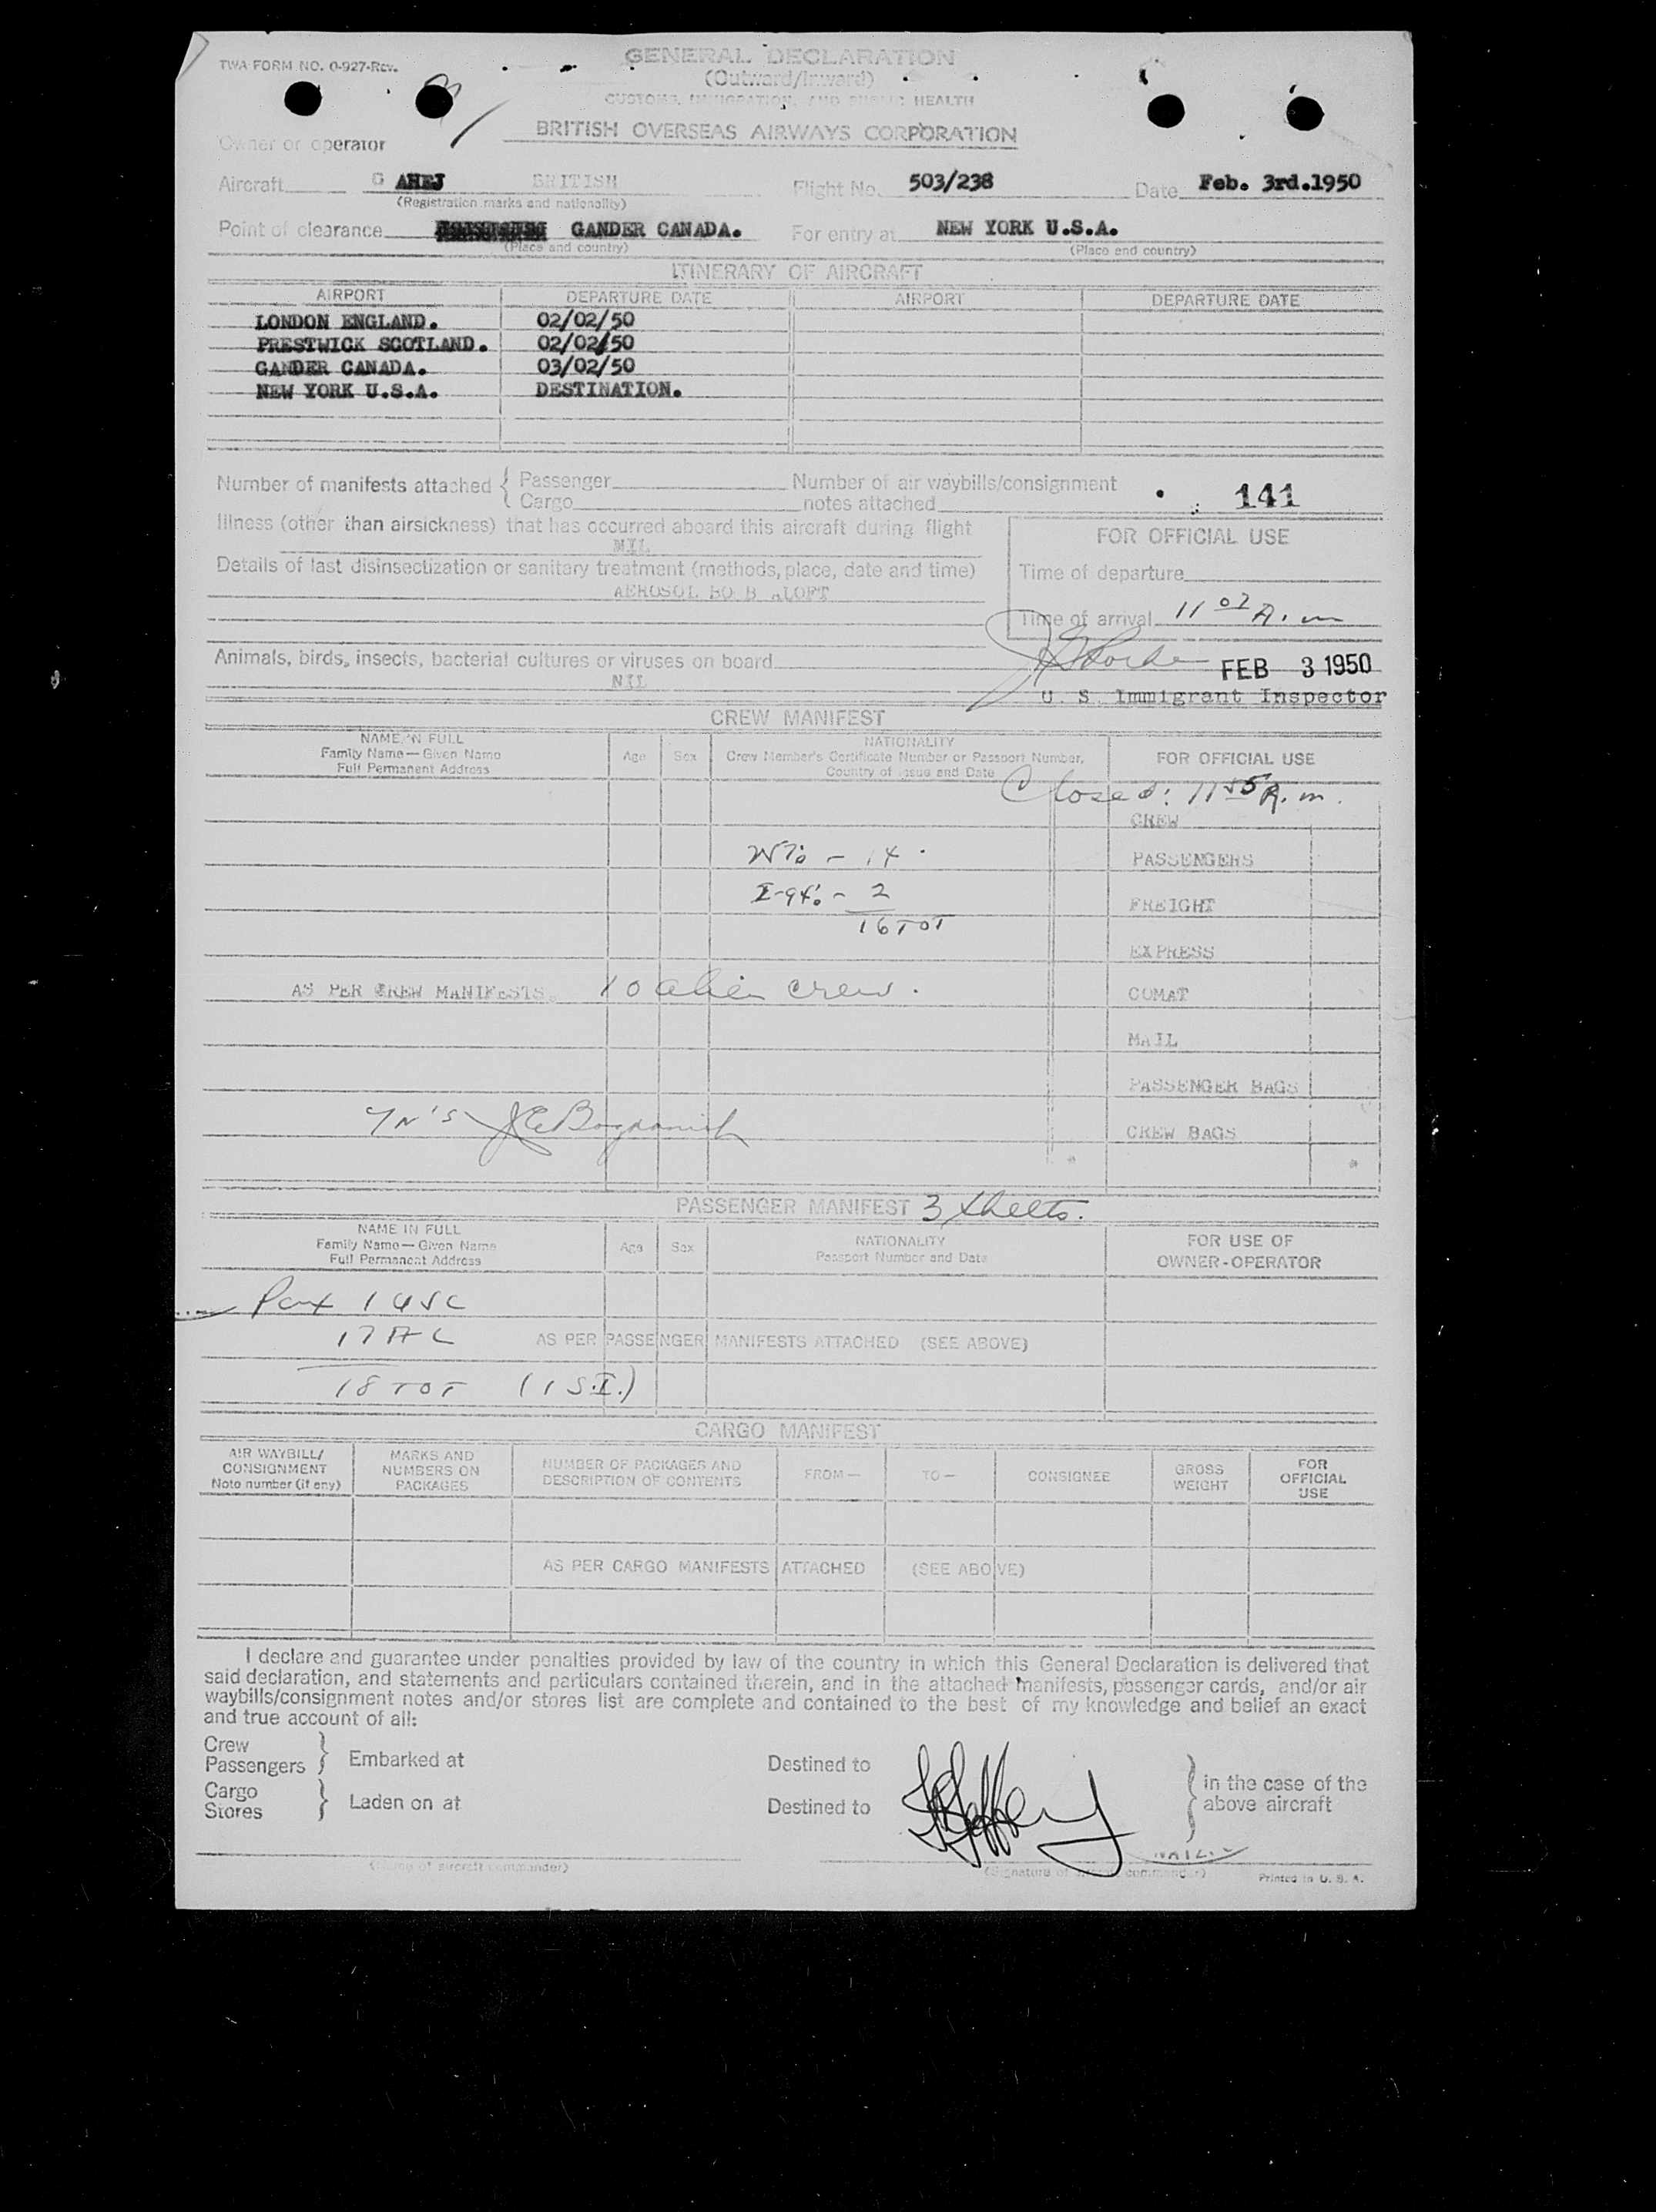 TWA FORM NO. 0-927-Rev.
GENERAL DECLARATION
(Outward/Inward)
CUSTOMS, IMMIGRATION, AND PUBLIC HEALTH
Owner or operator BRITISH OVERSEAS AIRWAYS CORPORATION
Aircraft G AHEJ BRITISH Flight No. 503/238 Date Feb. 3rd.1950
(Registration marks and nationality)
Point of clearance GANDER CANADA. For entry at NEW YORK U.S.A.
(Place and country) (Place and country)
ITINERARY OF AIRCRAFT
AIRPORT DEPARTURE DATE AIRPORT DEPARTURE DATE
LONDON ENGLAND. 02/02/50
PRESTWICK SCOTLAND. 02/02/50
GANDER CANADA. 03/02/50
NEW YORK U.S.A. DESTINATION.
Number of manifests attached { Passenger Number of air waybills/consignment
Cargo notes attached 141
Illness (other than airsickness) that has occurred aboard this aircraft during flight
NIL
FOR OFFICIAL USE
Details of last disinsectization or sanitary treatment (methods, place, date and time)
AEROSOL BO B ALOFT
Time of departure
Time of arrival 11 07 A.m
Animals, birds, insects, bacterial cultures or viruses on board
NIL
FEB 3 1950
U. S. Immigrant Inspector
CREW MANIFEST
NAME IN FULL
Family Name — Given Name
Full Permanent Address
Age Sex
NATIONALITY
Crew Member's Certificate Number or Passport Number,
Country of Issue and Date
FOR OFFICIAL USE
Closed: 11 55 A.m.
CREW
14
PASSENGERS
2
FREIGHT
16 TOT
EXPRESS
AS PER CREW MANIFESTS. 10 alien crew. COMAT
MAIL
PASSENGER BAGS
CREW BAGS
PASSENGER MANIFEST 3 sheets.
NAME IN FULL
Family Name — Given Name
Full Permanent Address
Age Sex
NATIONALITY
Passport Number and Date
FOR USE OF
OWNER-OPERATOR
Pax 1 USC
17 AC AS PER PASSENGER MANIFESTS ATTACHED (SEE ABOVE)
18 TOT (1 S.I.)
CARGO MANIFEST
AIR WAYBILL/
CONSIGNMENT
Note number (if any)
MARKS AND
NUMBERS ON
PACKAGES
NUMBER OF PACKAGES AND
DESCRIPTION OF CONTENTS
FROM— TO— CONSIGNEE
GROSS
WEIGHT
FOR
OFFICIAL
USE
AS PER CARGO MANIFESTS ATTACHED (SEE ABOVE)
I declare and guarantee under penalties provided by law of the country in which this General Declaration is delivered that
said declaration, and statements and particulars contained therein, and in the attached manifests, passenger cards, and/or air
waybills/consignment notes and/or stores list are complete and contained to the best of my knowledge and belief an exact
and true account of all:
Crew
Passengers } Embarked at Destined to
Cargo
Stores } Laden on at Destined to
} in the case of the
above aircraft
(Name of aircraft commander) (Signature of aircraft commander)
Printed in U. S. A.